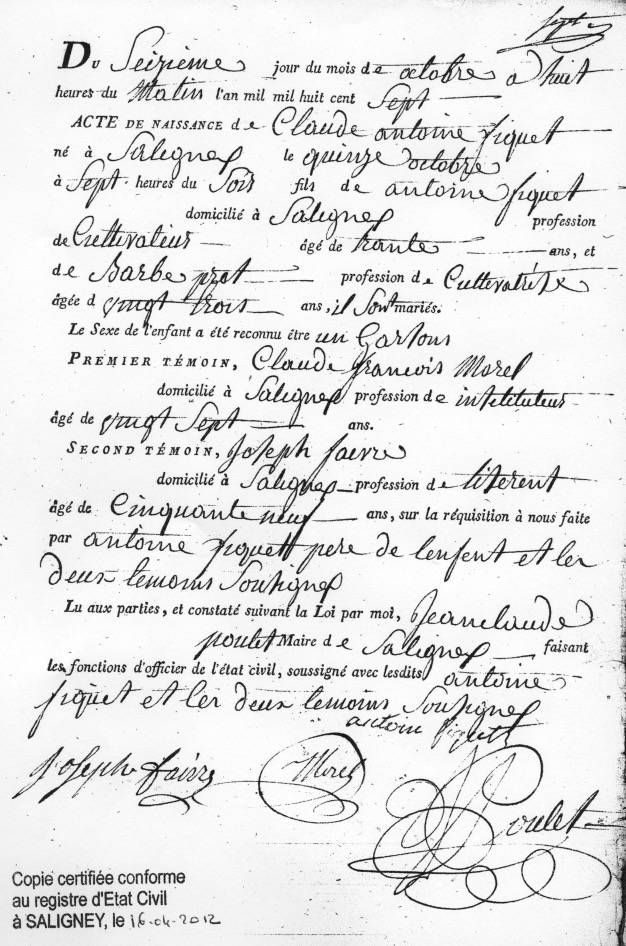 Sept
Du Seizième jour du mois de octobre à huit
heures du Matin l'an mil mil huit cent Sept
ACTE DE NAISSANCE de Claude antoine piquet
né à Saligney le quinze octobre
à Sept heures du Soir fils de antoine piquet
domicilié à Saligney profession
de Cultivateur âgé de trante ans, et
de Barbe prot profession de Cultivatrice
âgée d vingt trois ans, il Sont mariés.
Le Sexe de l'enfant a été reconnu être un Garsons
PREMIER TÉMOIN, Claude francois Morel
domicilié à Saligney profession de instituteur
âgé de vingt Sept ans.
SECOND TÉMOIN, Joseph faivre
domicilié à Saligney profession de
âgé de Cinquante neuf ans, sur la réquisition à nous faite
par antoine piquet pere de lenfent et les
deux temoins Soutignes
Lu aux parties, et constaté suivant la Loi par moi, Jeanclaude
poulet Maire de Saligney faisant
les fonctions d'officier de l'état civil, soussigné avec lesdits antoine
piquet et les deux temoins Soutignes
antoin piquet
Joseph faivre Morel Poulet
Copie certifiée conforme
au registre d'Etat Civil
à SALIGNEY, le 16-04-2012